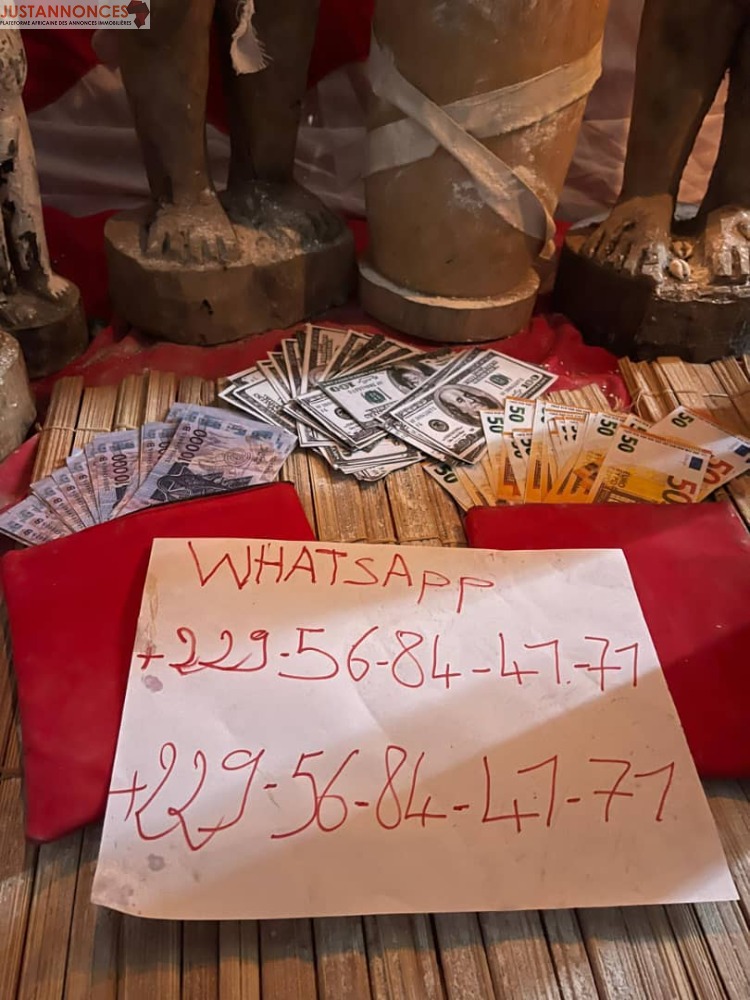 JUSTANNONCES
PLATEFORME AFRICAINE DES ANNONCES IMMOBILIÈRES
10000
10000
100
50
50
50
50
50
WHATSAPP
+229-56-84-41-71
+229-56-84-41-71